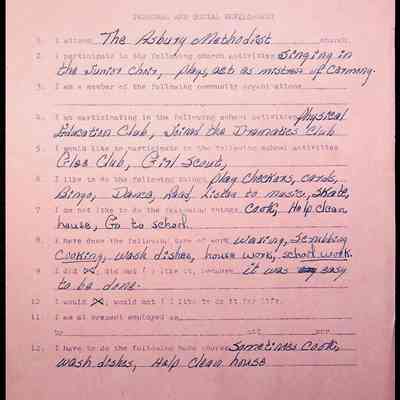 PERSONAL AND SOCIAL DEVELOPMENT
1. I attend The Asbury Methodist church.
2. I participate in the following church activities Singing in
the Junior Choir, Plays, act as mistress of Carmony.
3. I am a member of the following community organizations
4. I am participating in the following school activities Physical
Education Club, Joined the Dramatics Club
5. I would like to participate in the following school activities
Glee Club, Girl Scout,
6. I like to do the following things play checkers, cards,
Bingo, Dance, Read, Listen to music, Skate,
7. I do not like to do the following things Cook, Help clean
house, Go to school.
8. I have done the following type of work waxing, Scrubbing
Cooking, wash dishes, house work, school work.
9. I did, did not ( ) like it, because it was easy
to be done.
10 I would, would not ( ) like to do it for life.
11. I am at present employed as
to at per
12. I have to do the following home chores Sometimes Cook,
wash dishes, Help clean house